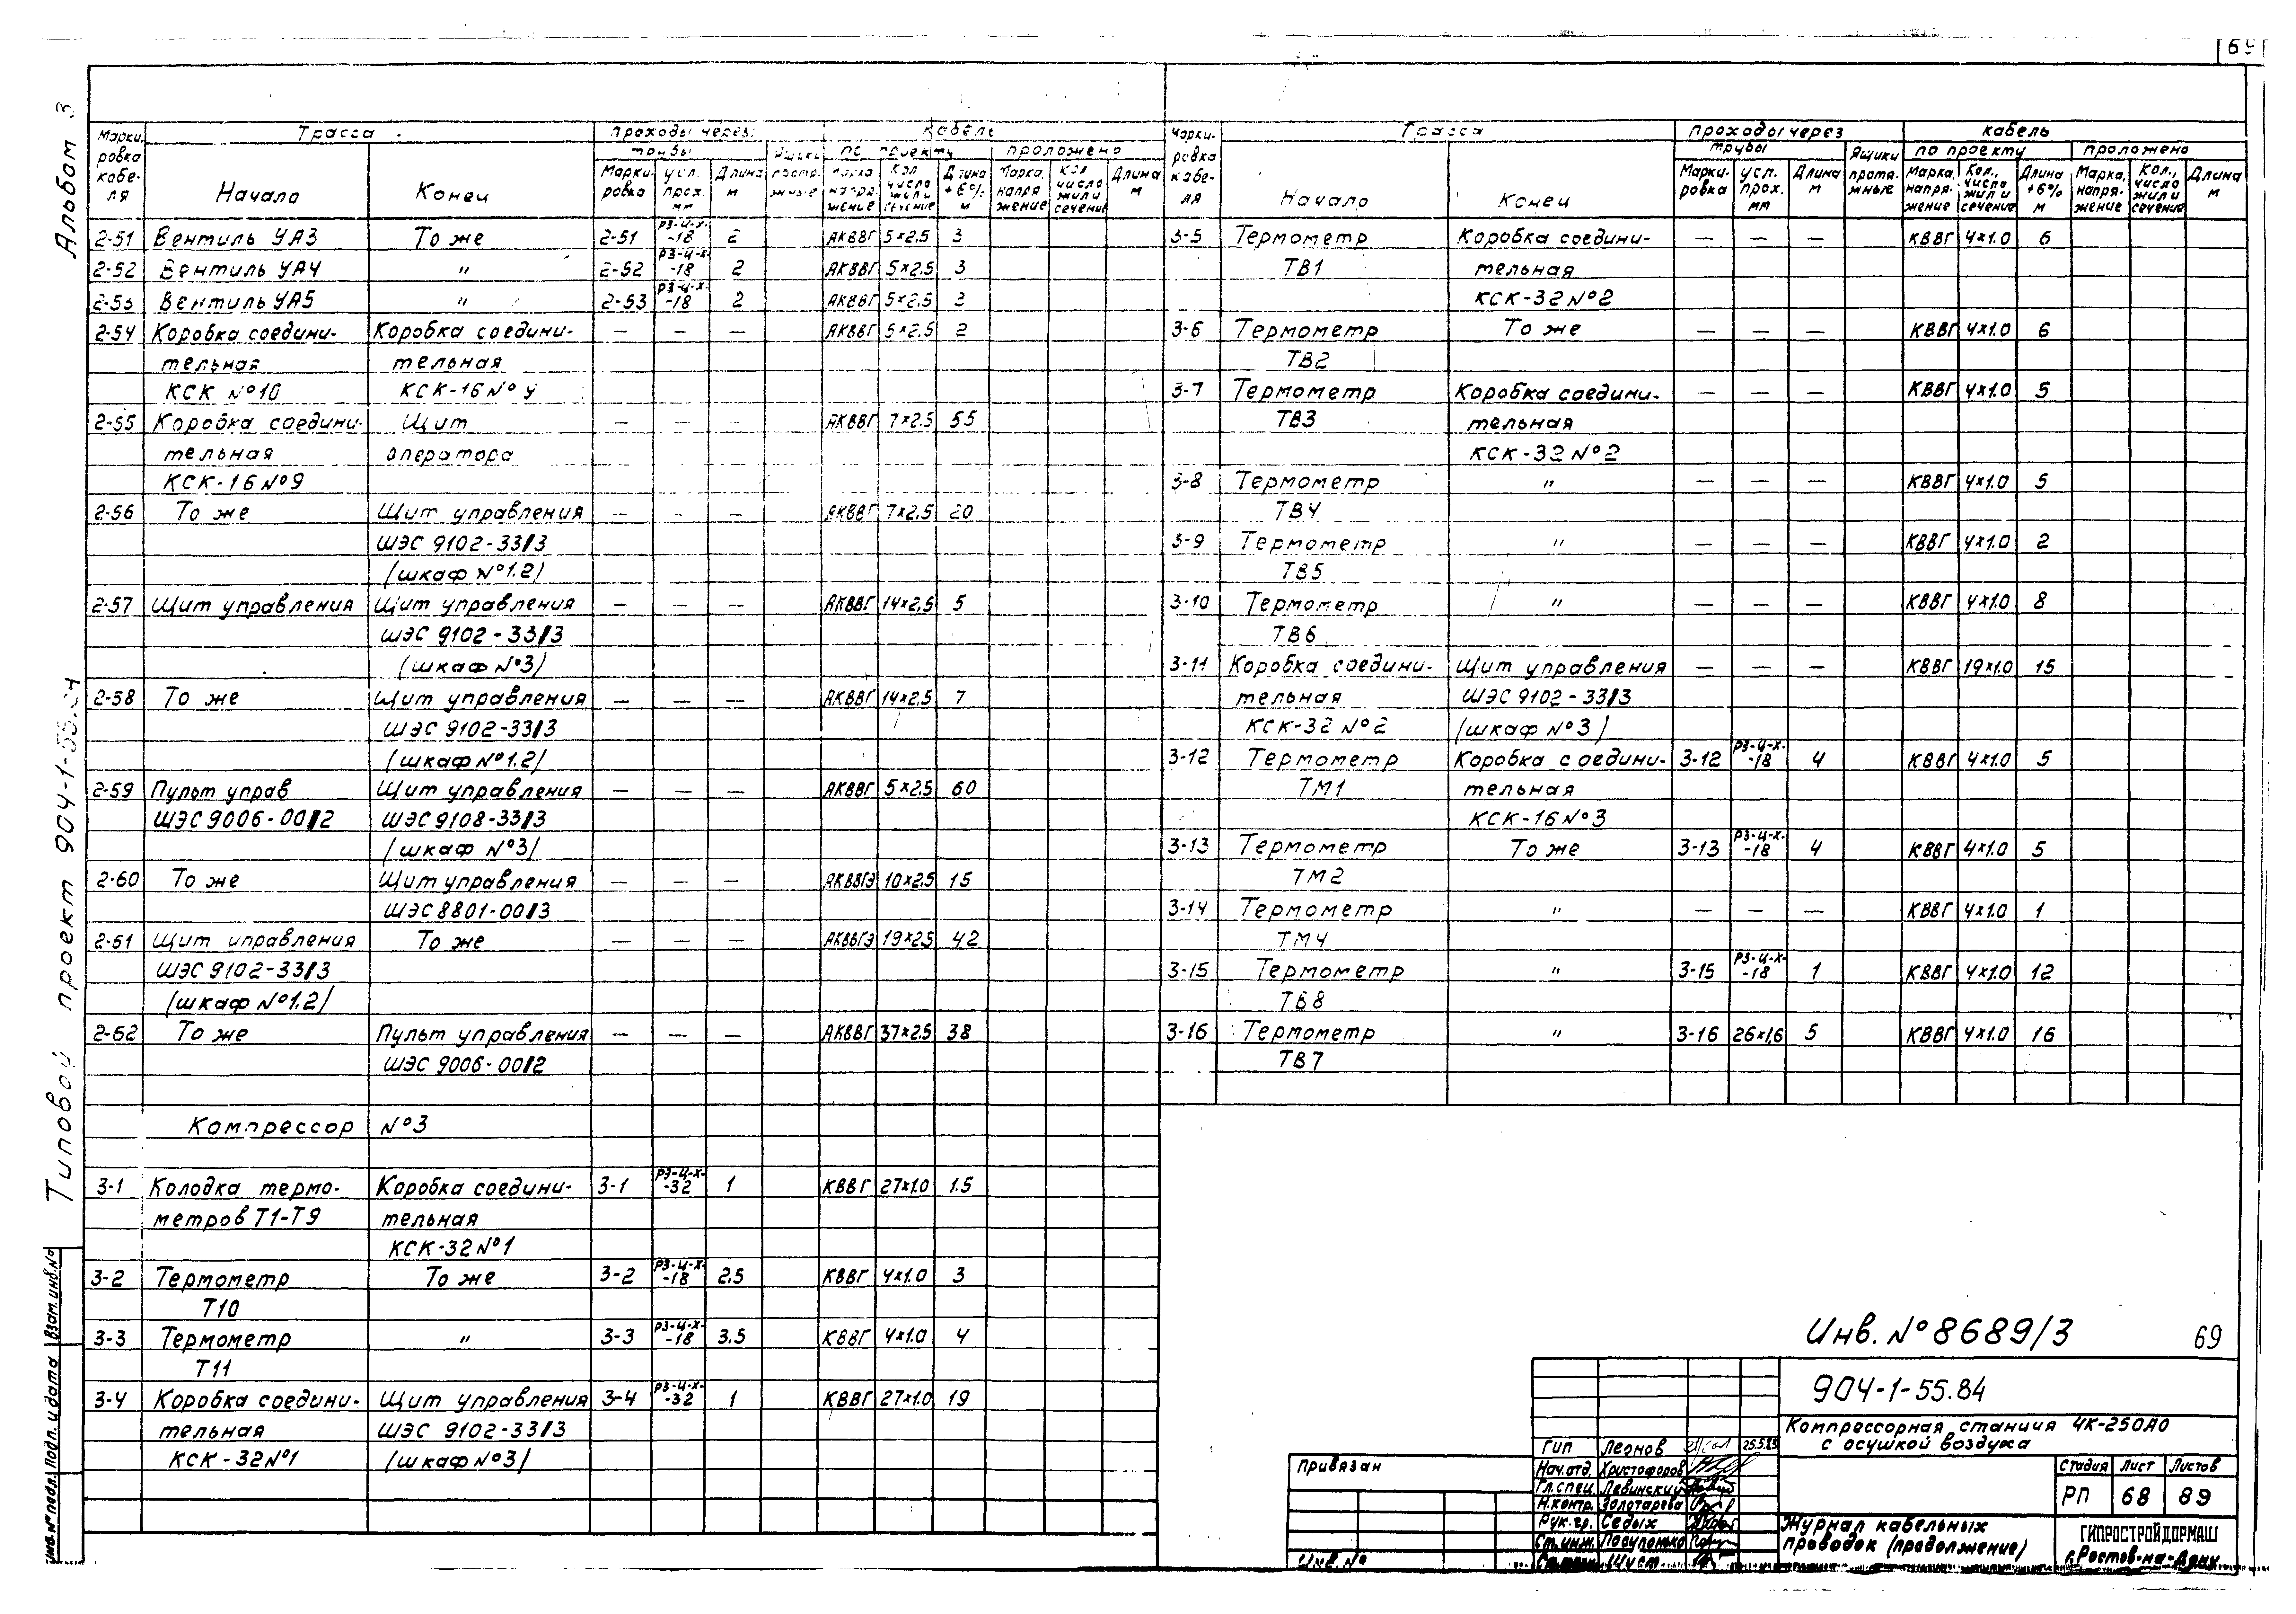 69
Альбом 3
Типовой проект 904-1-55.84
Марки-ровка кабе-ля | Трасса | проходы через: | Кабель
трубы | Ящики протя-жные | по проекту | проложено
Начало | Конец | Марки-ровка | усл. прох. мм | Длина м | Марка напря-жение | Кол число жил и сечение | Длина +6% м | Марка, напря жение | Кол число жил и сечение | Длина м
2-51 Вентиль УА3 То же 2-51 РЗ-Ц-Х--18 2 АКВВГ 5×2.5 3
2-52 Вентиль УА4 " 2-52 РЗ-Ц-Х--18 2 АКВВГ 5×2.5 3
2-53 Вентиль УА5 " 2-53 РЗ-Ц-Х--18 2 АКВВГ 5×2.5 3
2-54 Коробка соедини- Коробка соедини- — — — АКВВГ 5×2.5 2
тельная тельная
КСК №10 КСК-16 № 9
2-55 Коробка соедини- Щит — — — АКВВГ 7×2.5 55
тельная оператора
КСК-16 №9
2-56 То же Щит управления — — — АКВВГ 7×2.5 20
ШЭС 9102-33/3
(шкаф №1.2)
2-57 Щит управления Щит управления — — — АКВВГ 14×2.5 5
ШЭС 9102-33/3
(шкаф №3)
2-58 То же Щит управления — — — АКВВГ 14×2.5 7
ШЭС 9102-33/3
(шкаф №1.2)
2-59 Пульт управ Щит управления — — — АКВВГ 5×2.5 60
ШЭС 9006-00/2 ШЭС 9108-33/3
(шкаф №3)
2-60 То же Щит управления — — — АКВВГЭ 10×2.5 15
ШЭС 8801-00/3
2-61 Щит управления То же — — — АКВВГЭ 19×2.5 42
ШЭС 9102-33/3
(шкаф №1.2)
2-62 То же Пульт управления — — — АКВВГ 37×2.5 38
ШЭС 9006-00/2
Компрессор №3
3-1 Колодка термо- Коробка соедини- 3-1 РЗ-Ц-Х--32 1 КВВГ 27×1.0 1.5
метров Т1-Т9 тельная
КСК-32 №1
3-2 Термометр То же 3-2 РЗ-Ц-Х--18 2.5 КВВГ 4×1.0 3
Т10
3-3 Термометр " 3-3 РЗ-Ц-Х--18 3.5 КВВГ 4×1.0 4
Т11
3-4 Коробка соедини- Щит управления 3-4 РЗ-Ц-Х--32 1 КВВГ 27×1.0 19
тельная ШЭС 9102-33/3
КСК-32 №1 (шкаф №3)
Марки-ровка кабе-ля | Трасса | проходы через | кабель
трубы | Ящики протя-жные | по проекту | проложено
Начало | Конец | Марки-ровка | усл. прох. мм | Длина м | Марка, напря-жение | Кол., число жил и сечение | Длина +6% м | Марка, напря-жение | Кол., число жил и сечение | Длина м
3-5 Термометр Коробка соедини- — — — КВВГ 4×1.0 6
ТВ1 тельная
КСК-32 №2
3-6 Термометр То же — — — КВВГ 4×1.0 6
ТВ2
3-7 Термометр Коробка соедини- — — — КВВГ 4×1.0 5
ТВ3 тельная
КСК-32 №2
3-8 Термометр " — — — КВВГ 4×1.0 5
ТВ4
3-9 Термометр " — — — КВВГ 4×1.0 2
ТВ5
3-10 Термометр " — — — КВВГ 4×1.0 8
ТВ6
3-11 Коробка соедини- Щит управления — — — КВВГ 19×1.0 15
тельная ШЭС 9102-33/3
КСК-32 №2 (шкаф №3)
3-12 Термометр Коробка соедини- 3-12 РЗ-Ц-Х--18 4 КВВГ 4×1.0 5
ТМ1 тельная
КСК-16 №3
3-13 Термометр То же 3-13 РЗ-Ц-Х--18 4 КВВГ 4×1.0 5
ТМ2
3-14 Термометр " — — — КВВГ 4×1.0 1
ТМ4
3-15 Термометр " 3-15 РЗ-Ц-Х--18 1 КВВГ 4×1.0 12
ТВ8
3-16 Термометр " 3-16 26×1,6 5 КВВГ 4×1.0 16
ТВ7
Инв. №8689/3 69
904-1-55.84
Компрессорная станция 4К-250АО
с осушкой воздуха
Гип Леонов 25.5.83
Нач.отд. Христофоров
Гл.спец. Левинский
Н.контр. Золотарева
Рук.гр. Седых
Ст.инж.
Шуст
Привязан
Инв.№
Стадия Лист Листов
РП 68 89
Журнал кабельных
проводок (продолжение)
ГИПРОСТРОЙДОРМАШ
г.Ростов-на-Дону
Инв.№ подл. Подп. и дата Взам.инв.№